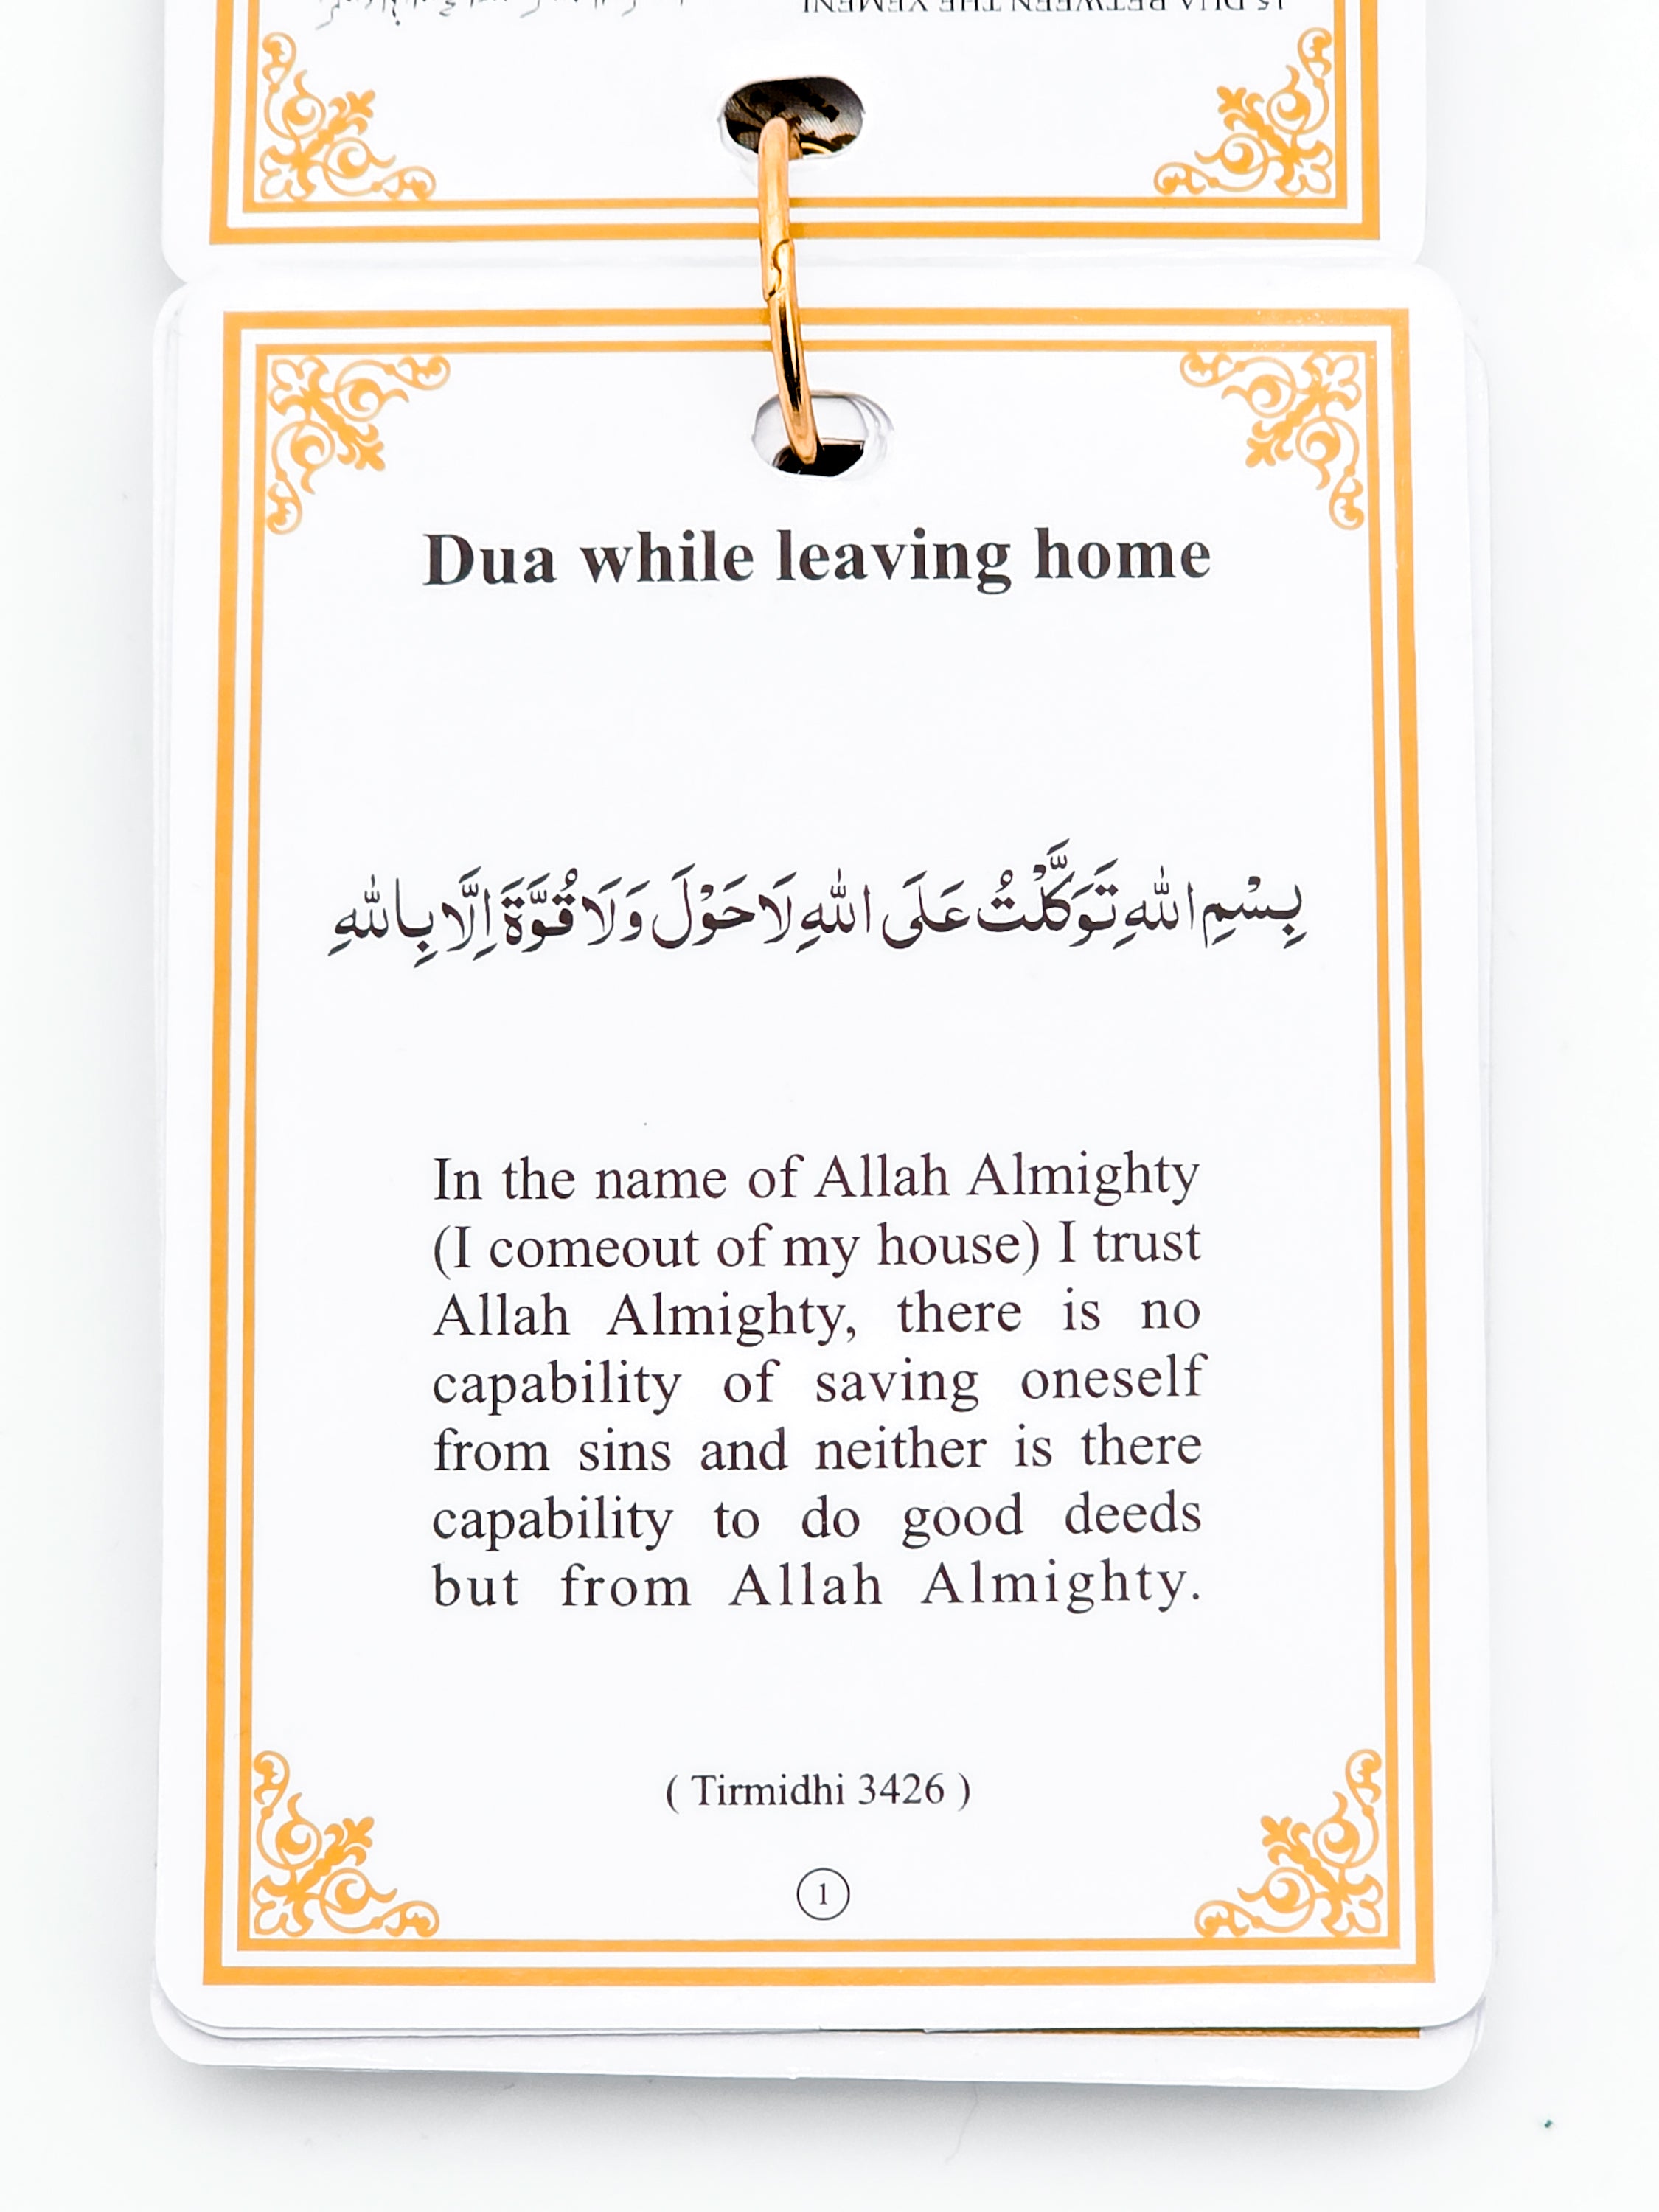 15 DUA BETWEEN THE YEMENI
Dua while leaving home
بِسْمِ اللهِ تَوَكَّلْتُ عَلَى اللهِ لَا حَوْلَ وَلَا قُوَّةَ اِلَّا بِاللهِ
In the name of Allah Almighty
(I comeout of my house) I trust
Allah Almighty, there is no
capability of saving oneself
from sins and neither is there
capability to do good deeds
but from Allah Almighty.
( Tirmidhi 3426 )
1